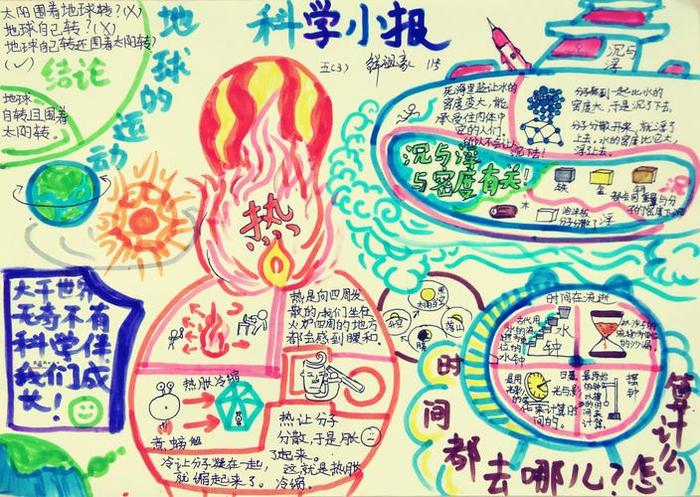 科学小报
五(3)
太阳围着地球转?(×)
地球自己转?(×)
地球自己转还围着太阳转?
(✓)
结论
地球
自转,且围着
太阳转。
地球的运动
大千世界
无奇不有
科学伴
我们成
长!
热
热是向四周发
散的,我们坐在
火炉四周的地方
都会感到暖和。
热胀冷缩
煮螃蟹
热让分子
分散,于是胀
起来了。
冷让分子凝在一起,
就缩起来了。
这就是热胀
冷缩。
沉与浮
死海里盐让水的
密度变大,能
承受住肉体中
空的人们,
分子聚到一起比水的
密度大,于是沉了下去。
分子分散开来,就浮了
上去,水的密度比它大
浮上去。
沉与浮
与密度有关!
沉
铁
金
铜
木
泡沫板
分子分散了
浮
时间在流逝
古代用
水的
水钟
水
钟
日晷
光与影
来计算时
间的。
摆钟
时间都去哪儿?怎么计算